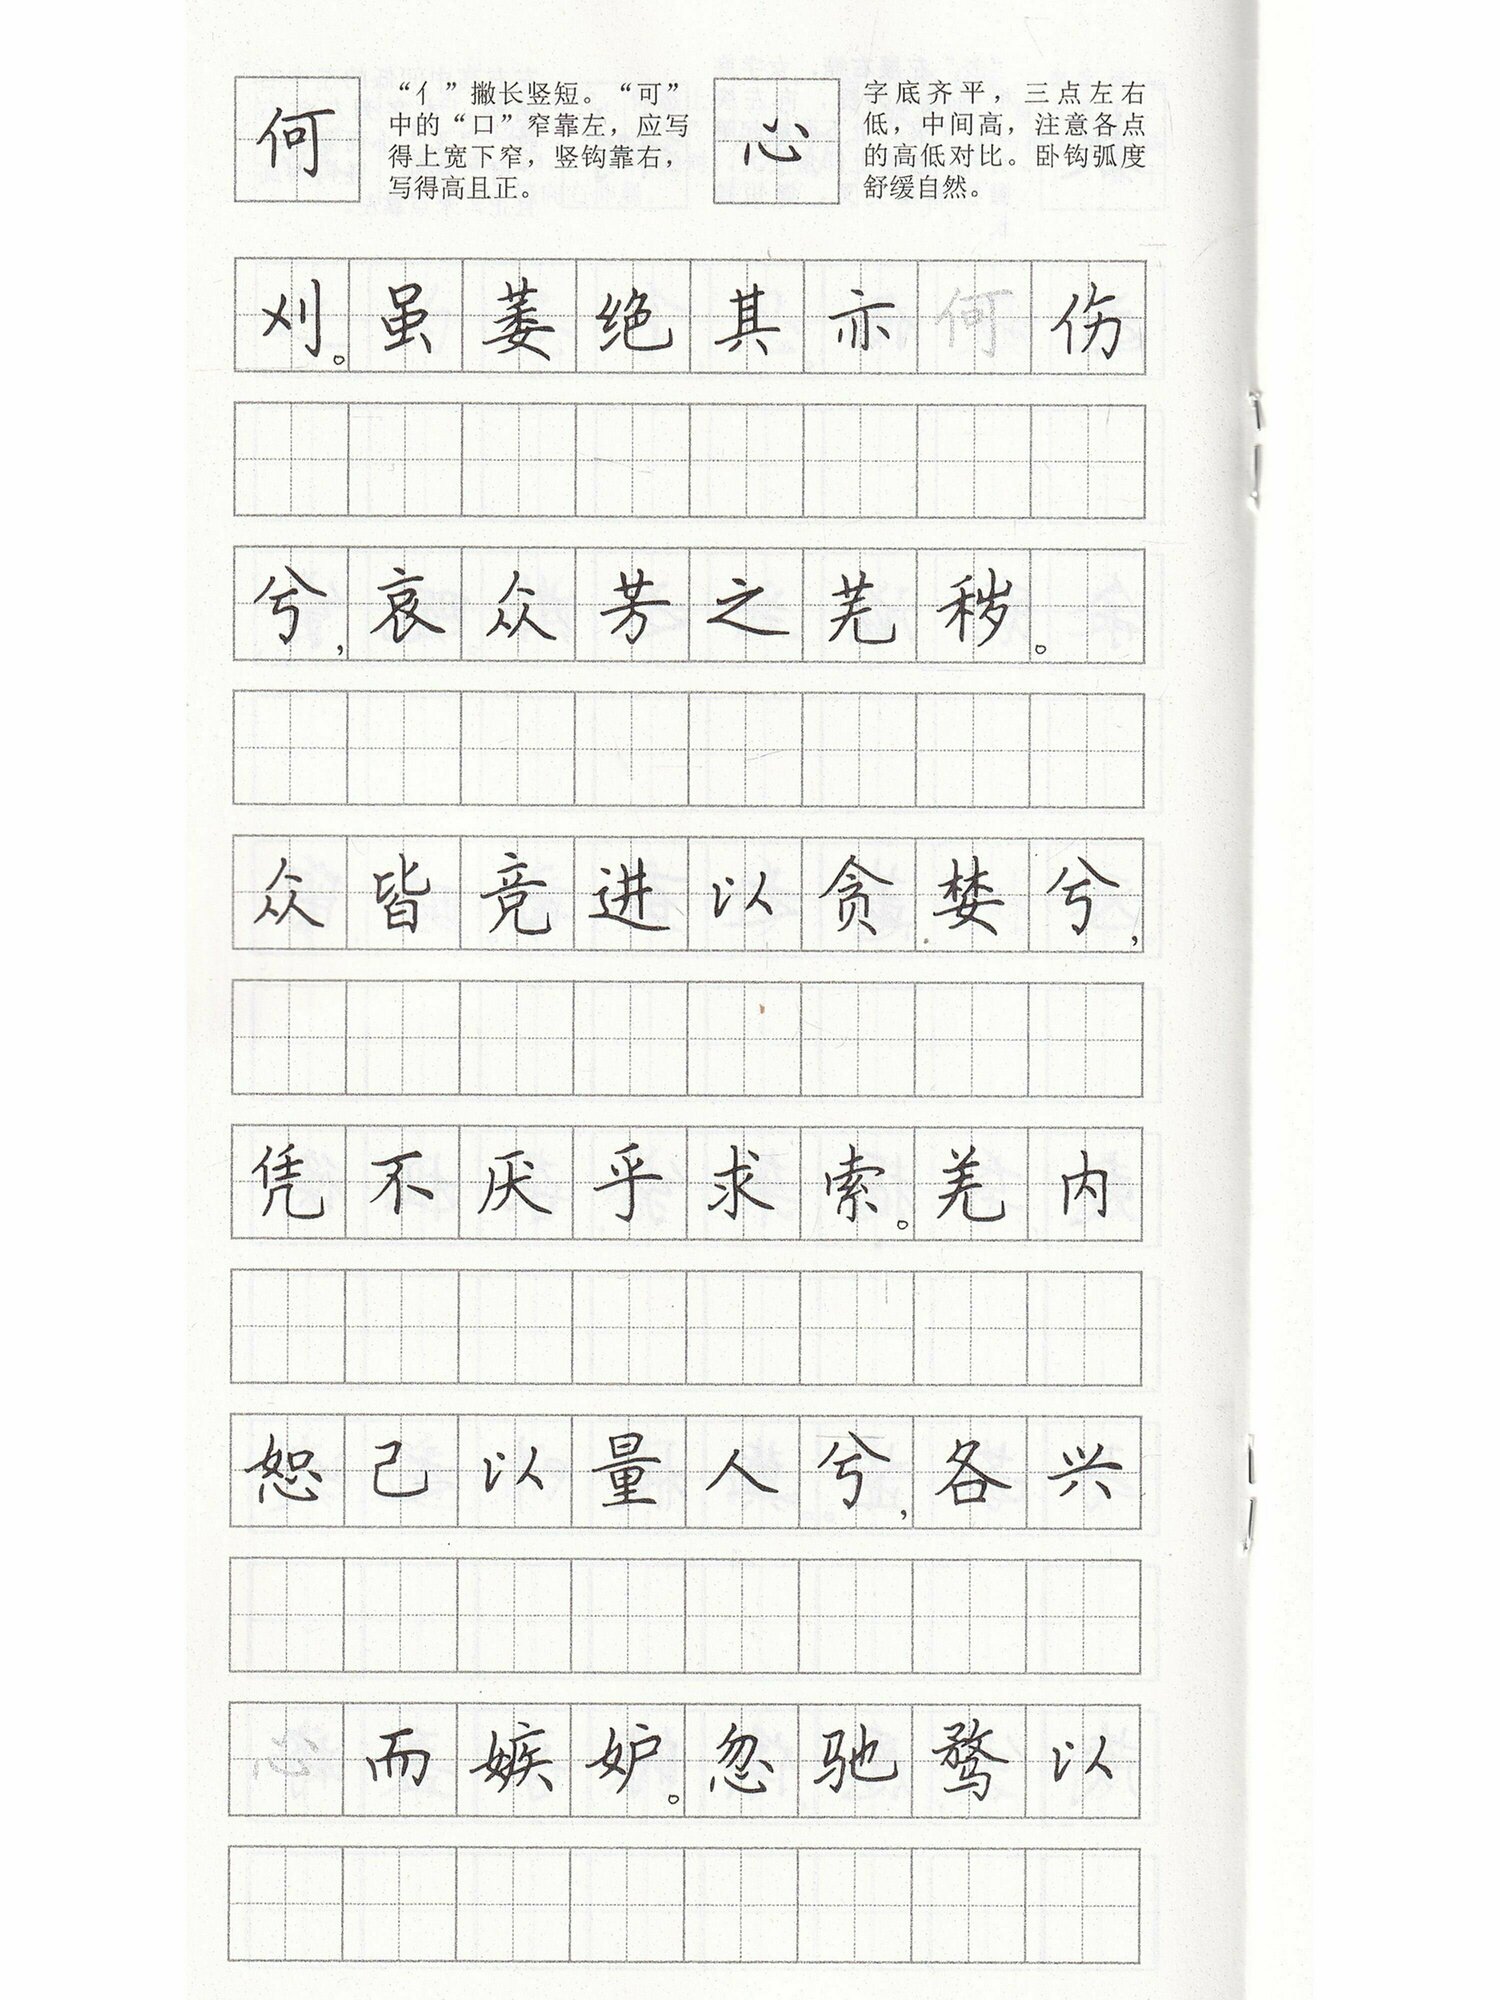 何
“亻”撇长竖短。“可”
中的“口”窄靠左，应写
得上宽下窄，竖钩靠右，
写得高且正。
心
字底齐平，三点左右
低，中间高，注意各点
的高低对比。卧钩弧度
舒缓自然。
刈。虽萎绝其亦何伤
兮，哀众芳之芜秽。
众皆竞进以贪婪兮，
凭不厌乎求索。羌内
恕己以量人兮，各兴
心而嫉妒。忽驰骛以